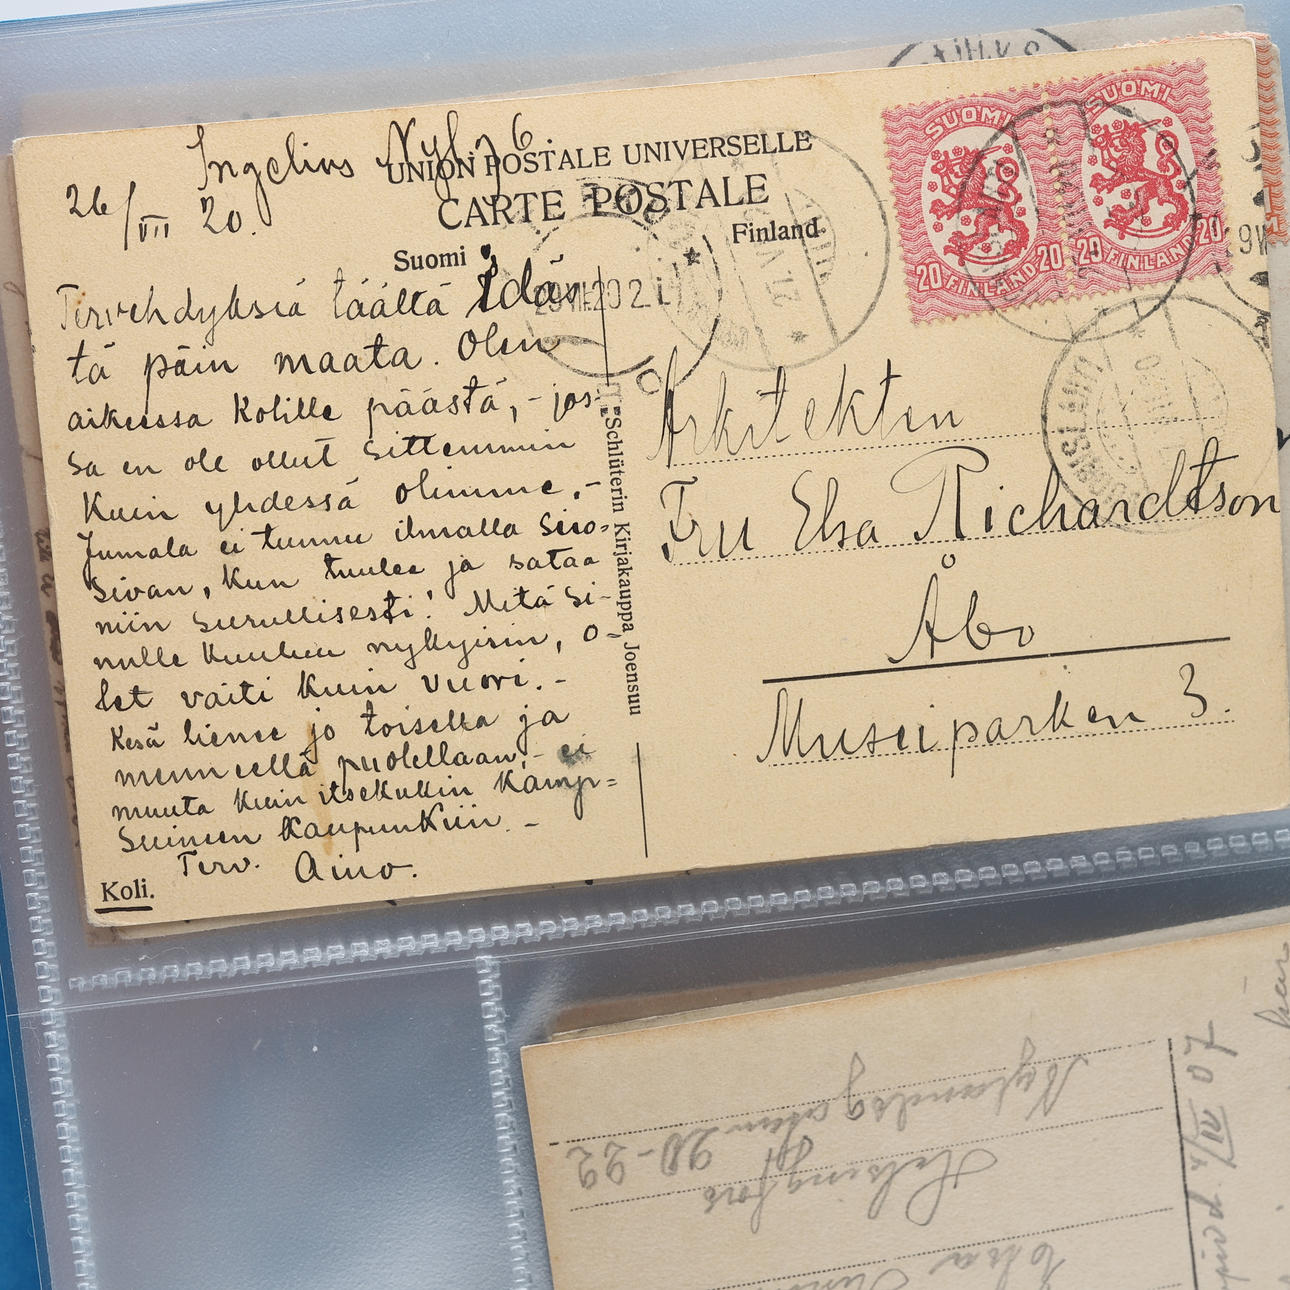 Ingelius Nyl. 76.
26/VII 20.
UNION POSTALE UNIVERSELLE
CARTE POSTALE
Suomi
Finland
SUOMI
20 FINLAND 20
SUOMI
20 FINLAND 20
Tervehdyksiä täältä Idäs-
tä päin maata. Olen
aikeissa Kolille päästä, - jos-
sa en ole ollut sittemmin
kuin yhdessä olimme, -
Jumala ei tunnu ilmalla suo=
sivan, kun tuulee ja sataa
niin surullisesti! Mitä Si-
nulle kuuluu nykyisin, o-
let vaiti kuin vuori. -
Kesä lienee jo toisella ja
menneellä puolellaan, - ei
muuta kuin itsekukin kamp=
suineen kaupunkiin. -
Terv. Aino.
Koli.
Schlüterin Kirjakauppa, Joensuu
Arkitekten
Fru Elsa Richardtson
Åbo
Museiparken 3.
Nylandsgatan 20-22
Helsingfors
Elsa
IV 07